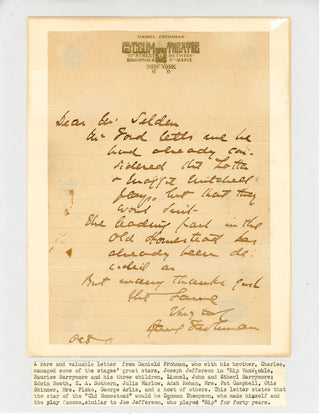 DANIEL FROHMAN
LYCEUM THEATRE
45TH STREET BETWEEN
BROADWAY & 6TH AVENUE
NEW YORK
Dear Mr Selden
Mr Ford tells me he
had already con-
sidered the Lotta
& Maggie Mitchell
plays, but that they
wont suit.
The leading part in the
Old Homestead has
already been de-
cided on
But many thanks just
the same
Daniel Frohman
A rare and valuable letter from Daniel Frohman, who with his brother, Charles,
managed some of the stages' great stars, Joseph Jefferson in "Rip VanWinkle,
Maurice Barrymore and his three children, Lionel, John and Etherl Barrymore;
Edwin Booth, E. A. Sothern, Julia Marlow, Adah Rehan, Mrs. Pat Campbell, Otis
Skinner, Mrs. Fiske, George Arlis, and a host of others. This letter states that
the star of the "Old Homestead" would be Denman Thompson, who made himself and
the play famous,similar to Joe Jefferson, who played "Rip" for forty years.